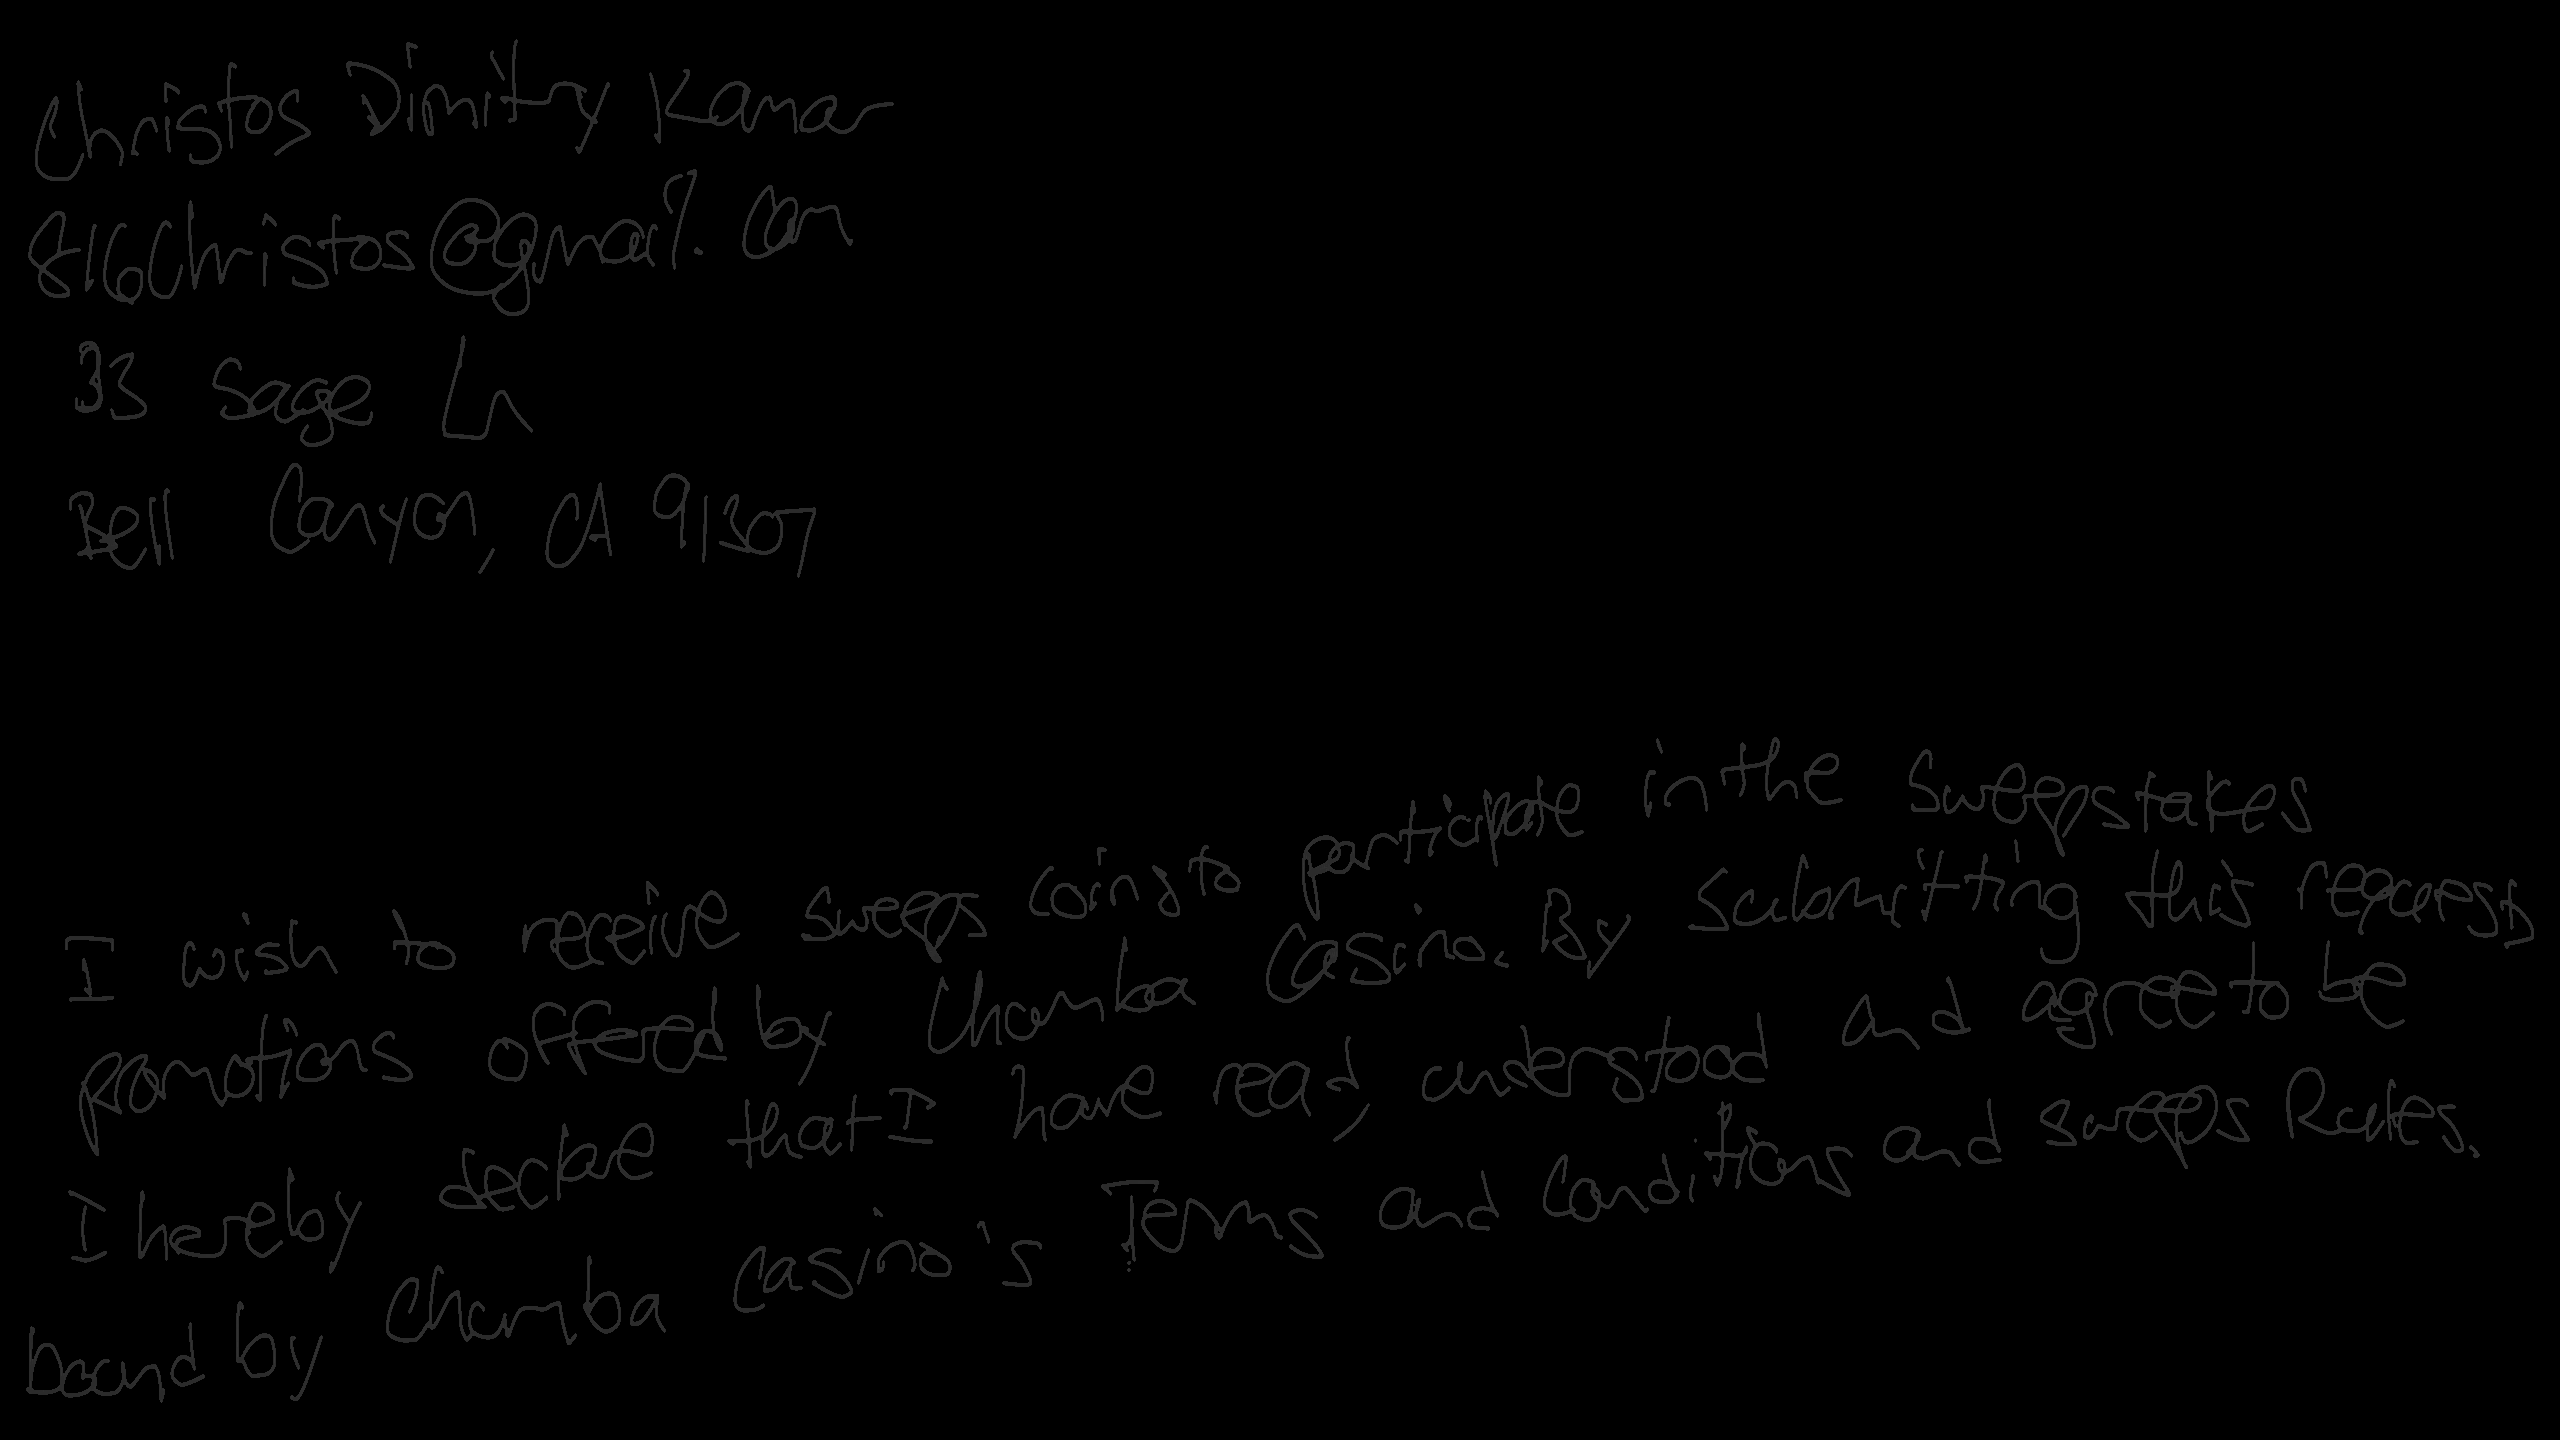 Christos Dimitry Kamar
816Christos@gmail.com
33 Sage Ln
Bell Canyon, CA 91307
I wish to receive sweeps coins to participate in the sweepstakes
promotions offered by Chumba Casino. By submitting this request,
I hereby declare that I have read, understood and agree to be
bound by Chumba Casino's Terms and Conditions and Sweeps Rules.